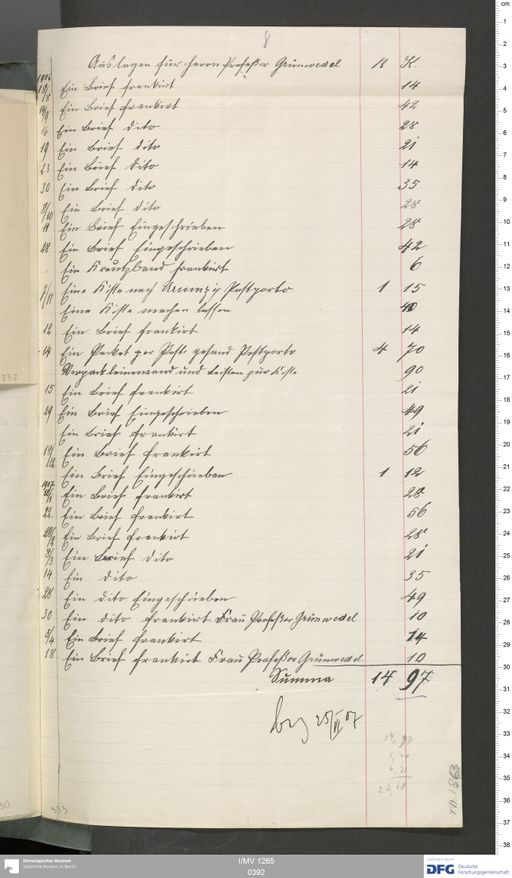 8
Auslagen für Herrn Profeßor Grünwedel R K.
1906
18/8 Ein Brief frankirt 14
14/9 Ein Brief frankirt 42
16 Ein Brief dito 28
19 Ein Brief dito 21
23 Ein Brief dito 14
30 Ein Brief dito 35
8/10 Ein Brief dito 28
11 Ein Brief Eingeschrieben 28
28 Ein Brief Eingeschrieben 42
Ein Kreutzband frankirt 6
7/11 Eine Kiste nach Urumzy Postporto 1 15
Eine Kiste machen lassen 40
12 Ein Brief frankirt 14
14 Ein Packet per Post gesand Postporto 4 70
Verpackleinwand und Leisten zur Kiste 90
15 Ein Brief frankirt 21
29 Ein Brief Eingeschrieben 49
Ein Brief frankirt 21
13/12 Ein Brief frankirt 56
Ein Brief Eingeschrieben 1 12
1907
Ein Brief frankirt 28
22 Ein Brief frankirt 56
Ein Brief frankirt 28
8/3 Ein Brief dito 21
14 Ein dito 35
28 Ein dito Eingeschrieben 49
30 Ein dito frankirt Frau Profeßor Grünwedel 10
5/4 Ein Brief frankirt 14
18 Ein Brief frankirt Frau Profeßor Grünwedel 10
Summa 14 97
14,97
332
333
Ethnologisches Museum
Staatliche Museen zu Berlin
I/MV 1265
0392
DFG Deutsche
Forschungsgemeinschaft
cm
1
2
3
4
5
6
7
8
9
10
11
12
13
14
15
16
17
18
19
20
21
22
23
24
25
26
27
28
29
30
31
32
33
34
35
36
37
38